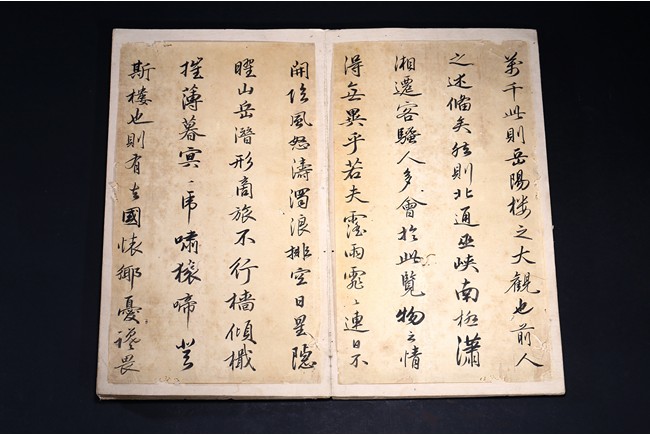 萬千此則岳陽楼之大觀也前人
之述備矣然則北通巫峽南極瀟
湘遷客騷人多會於此覽物之情
得無異乎若夫霪雨霏〻連日不
開陰風怒濤濁浪排空日星隱
曜山岳潛形商旅不行檣傾檝
摧薄暮冥〻虎嘯猿啼登
斯楼也則有去國懷鄉憂讒畏